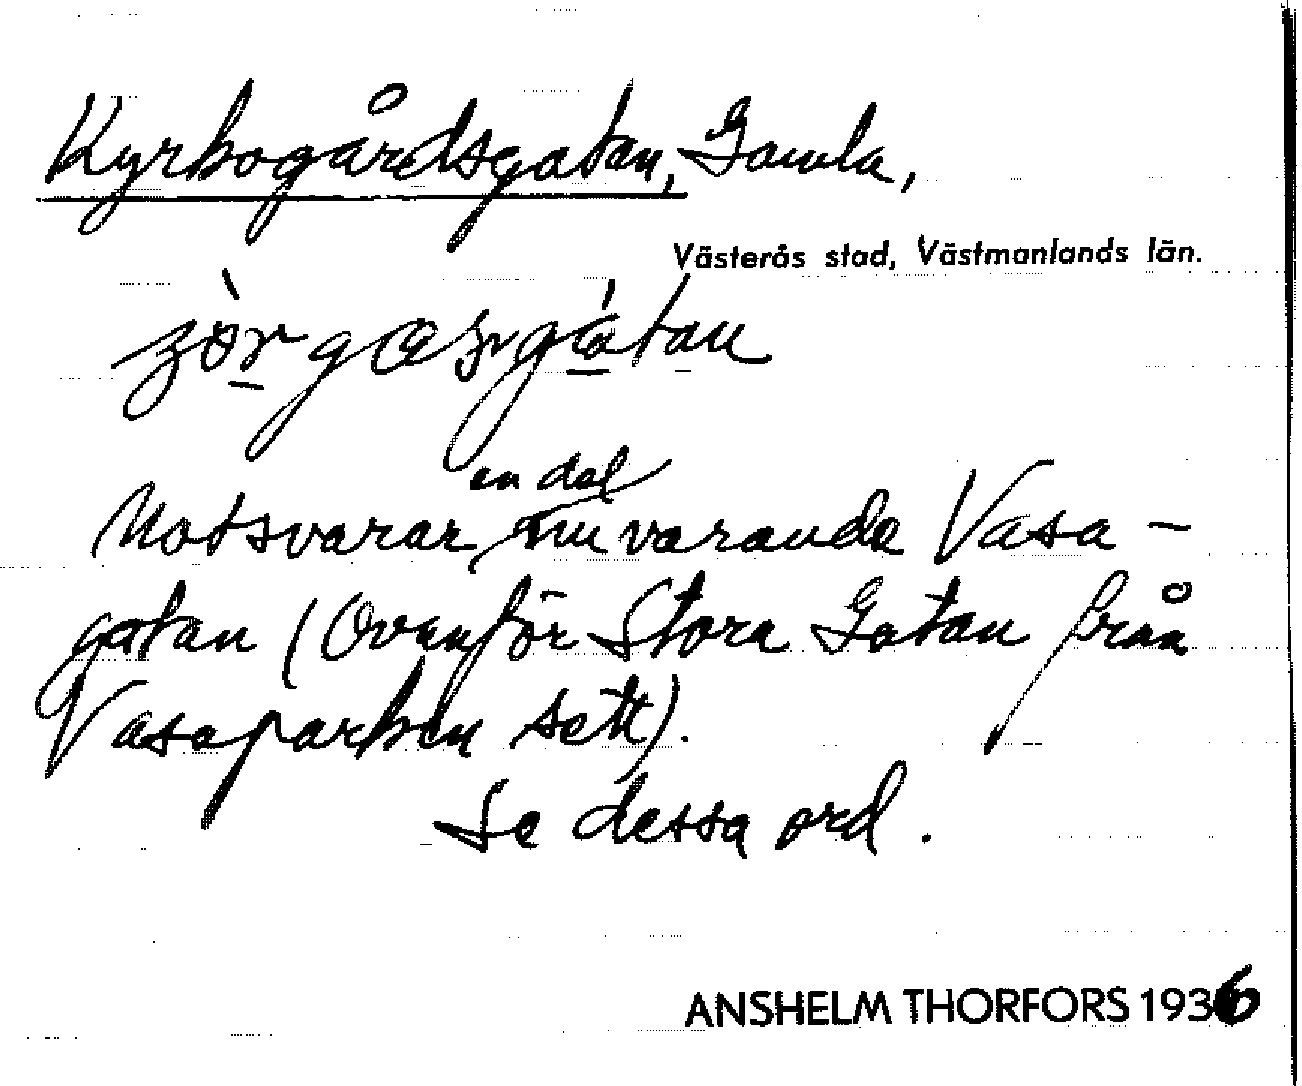 Kyrkogårdsgatan, Gamla,
Västerås stad, Västmanlands län.
en del
Motsvarar nuvarande Vasa-
gatan (Ovanför Stora Gatan från
Vasaparken sett).
Se dessa ord.
ANSHELM THORFORS 1936